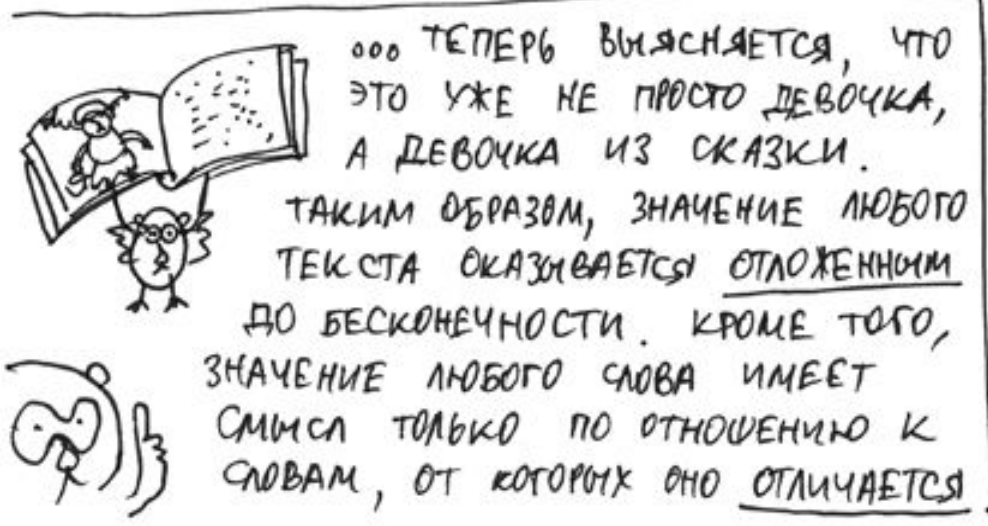 ... ТЕПЕРЬ ВЫЯСНЯЕТСЯ, ЧТО
ЭТО УЖЕ НЕ ПРОСТО ДЕВОЧКА,
А ДЕВОЧКА ИЗ СКАЗКИ.
ТАКИМ ОБРАЗОМ, ЗНАЧЕНИЕ ЛЮБОГО
ТЕКСТА ОКАЗЫВАЕТСЯ ОТЛОЖЕННЫМ
ДО БЕСКОНЕЧНОСТИ. КРОМЕ ТОГО,
ЗНАЧЕНИЕ ЛЮБОГО СЛОВА ИМЕЕТ
СМЫСЛ ТОЛЬКО ПО ОТНОШЕНИЮ К
СЛОВАМ, ОТ КОТОРЫХ ОНО ОТЛИЧАЕТСЯ.